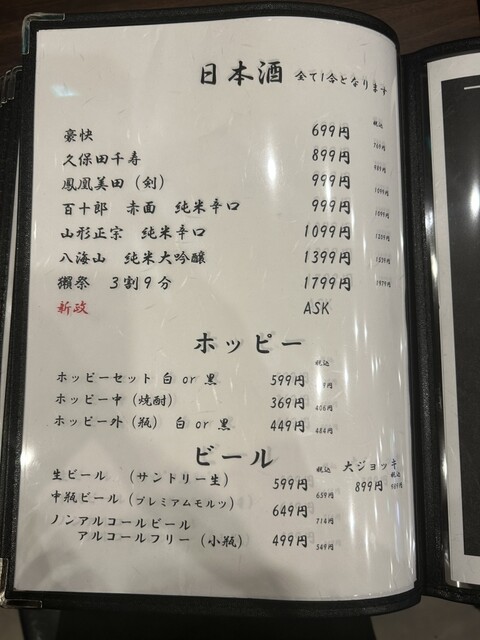 日本酒 全て1合となります
税込
豪快 699円 769円
久保田千寿 899円 989円
鳳凰美田（剣） 999円 1099円
百十郎 赤面 純米辛口 999円 1099円
山形正宗 純米辛口 1099円 1209円
八海山 純米大吟醸 1399円 1539円
獺祭 3割9分 1799円 1979円
新政 ASK
ホッピー
税込
ホッピーセット 白 or 黒 599円
ホッピー中（焼酎） 369円 406円
ホッピー外（瓶） 白 or 黒 449円 484円
ビール
税込 大ジョッキ
税込
生ビール （サントリー生） 599円 659円 899円
中瓶ビール（プレミアムモルツ） 649円 714円
ノンアルコールビール
アルコールフリー（小瓶） 499円 549円